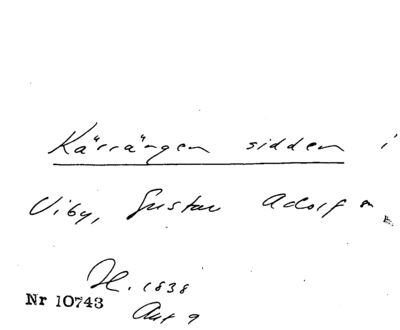 Kärrängen sidden i
Viby, Gustav Adolf
H. 1838
Nr 10743
Akt 9